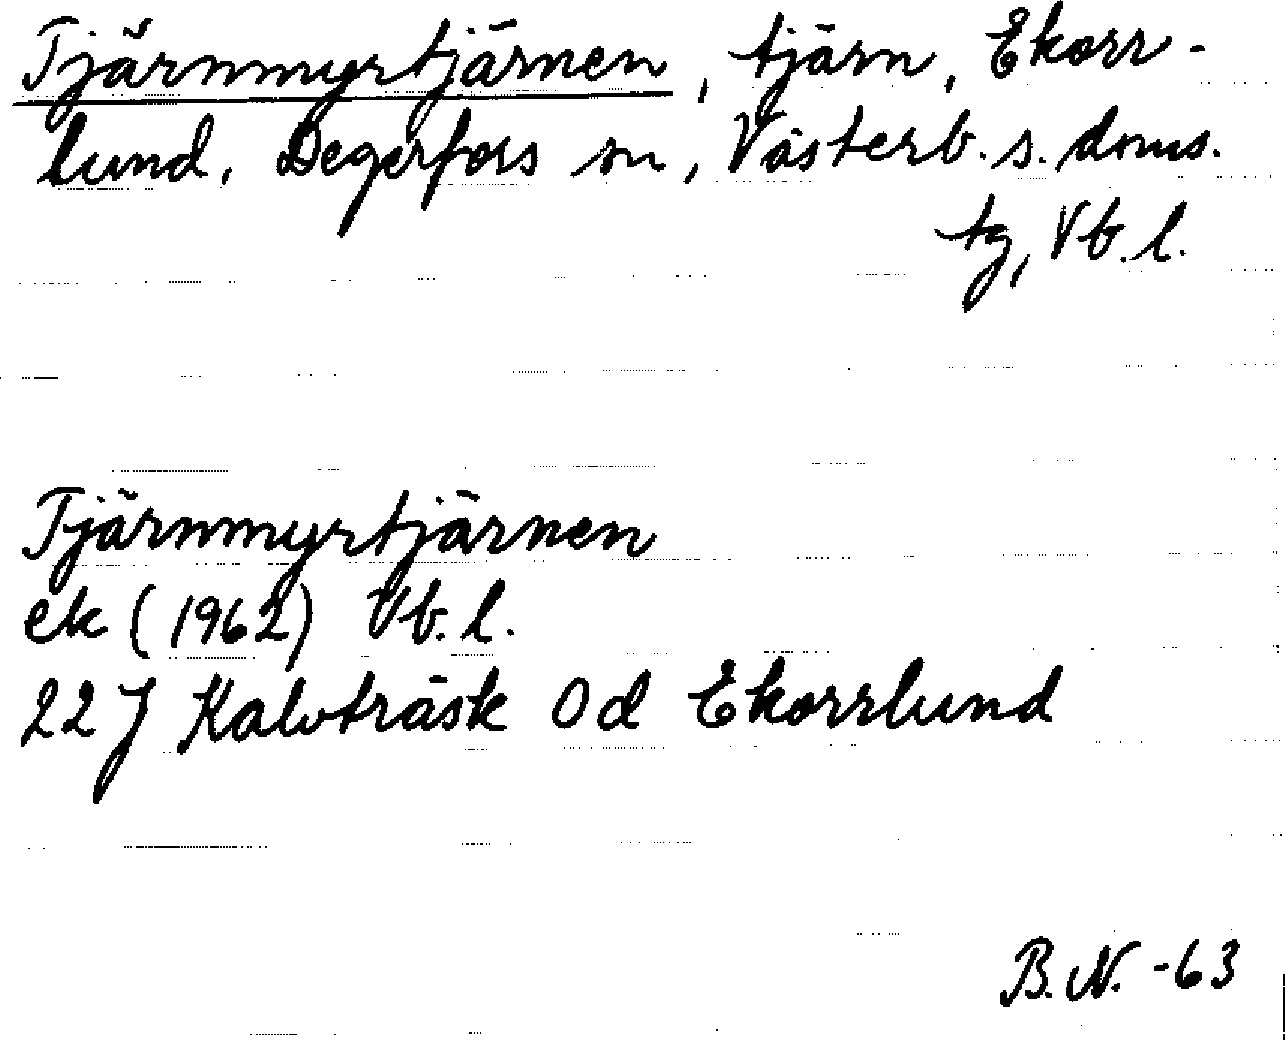 Tjärnmyrtjärnen, tjärn, Ekorr-
lund, Degerfors sn, Västerb. s. doms.
tg, Vb. l.
Tjärnmyrtjärnen
ek (1962) Vb. l.
22 J Kalvträsk 0 d Ekorrlund
B. N. -63